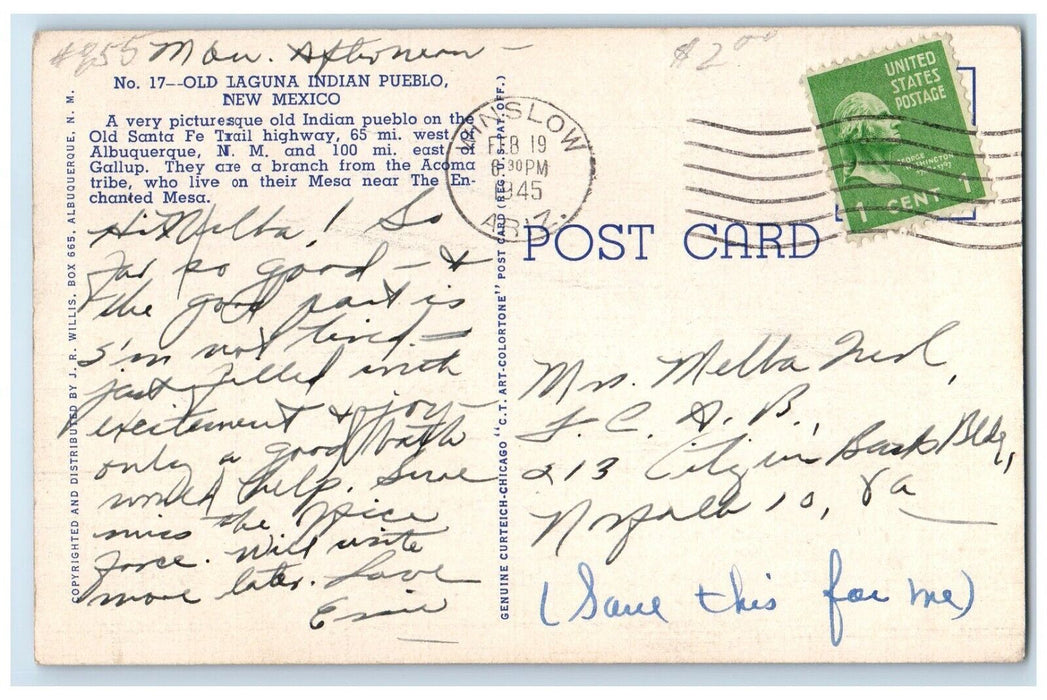 #955 Mon. Afternoon -
$2.00
No. 17--OLD LAGUNA INDIAN PUEBLO,
NEW MEXICO
A very picturesque old Indian pueblo on the
Old Santa Fe Trail highway, 65 mi. west of
Albuquerque, N. M. and 100 mi. east of
Gallup. They are a branch from the Acoma
tribe, who live on their Mesa near The En-
chanted Mesa.
Hi Melba! So
far so good - &
the good part is
I'm not tired -
just filled with
excitement & joy -
only a good bath
would help. Sure
miss the
force. Will write
more later. Love
COPYRIGHTED AND DISTRIBUTED BY J. R. WILLIS, BOX 665, ALBUQUERQUE, N. M.
GENUINE CURTEICH-CHICAGO "C.T. ART-COLORTONE" POST CARD (REG. U.S. PAT. OFF.)
WINSLOW
FEB 19
6 30 PM
1945
ARIZ.
UNITED
STATES
POSTAGE
GEORGE
WASHINGTON
1 CENT 1
POST CARD
Mrs. Melba
F. C. A. B.,
213 Citizens Bank Bldg,
Norfolk 10, Va
(Save this for me)